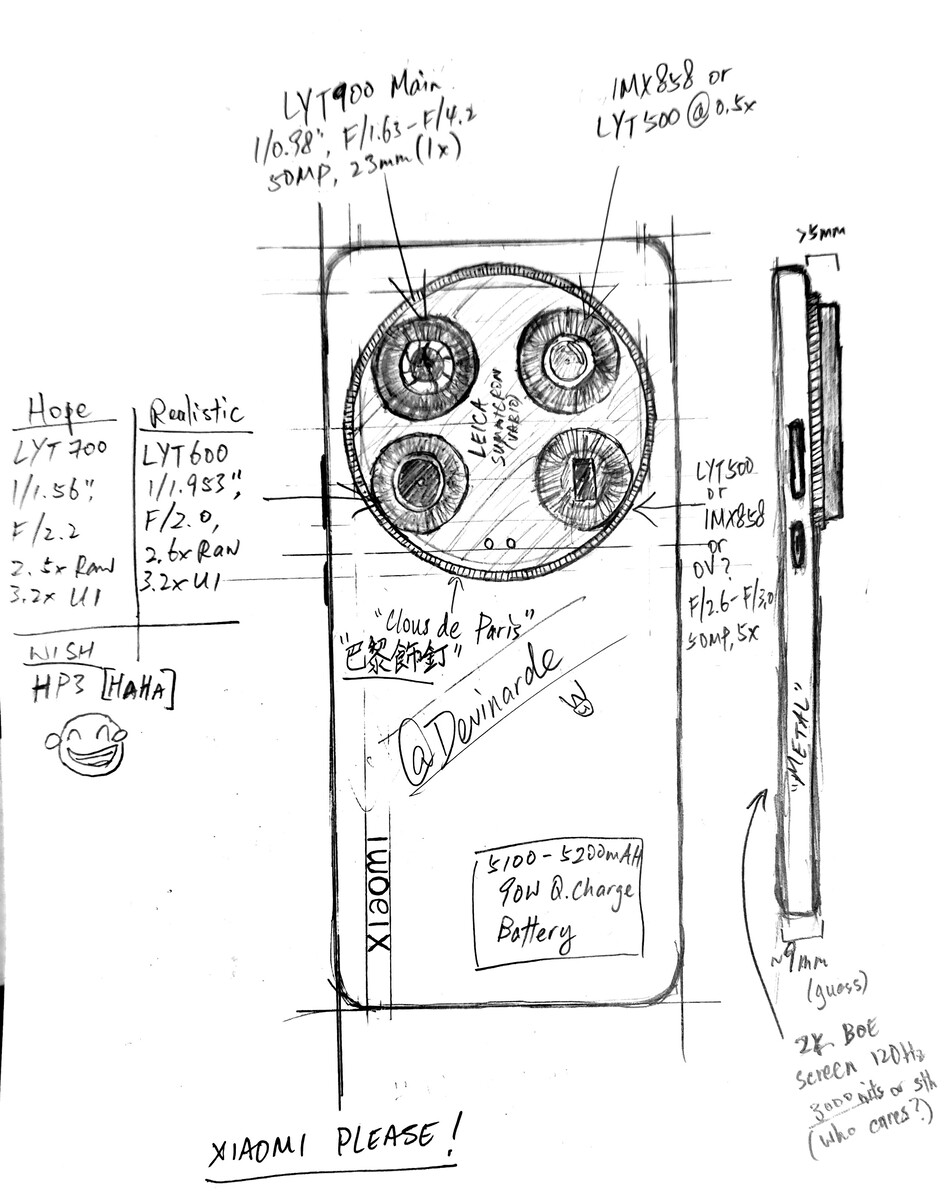 LYT900 Main
1/0.98", F/1.63-F/4.2
50MP, 23mm(1x)
IMX858 or
LYT500 @ 0.5x
>5mm
Hope
LYT700
1/1.56",
F/2.2
2.5x Raw
3.2x UI
Realistic
LYT600
1/1.953",
F/2.0,
2.6x Raw
3.2x UI
WISH
HP3 [HAHA]
LEICA
SUMMICRON
VARIO
LYT500
or
IMX858
or
OV?
F/2.6-F/3.0
50MP, 5x
"Clous de Paris"
"巴黎飾釘"
@Devinarde
"METAL"
xiaomi
5100-5200mAH
90W Q.Charge
Battery
~9mm
(guess)
2K BOE
screen 120Hz
3000nits or sth
(who cares?)
XIAOMI PLEASE!